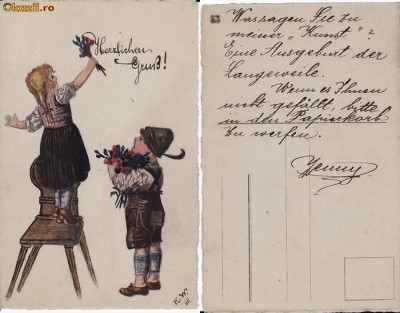 Okazii.ro
Herzlichen
Gruß!
E.W.
Wassagen Sie zu
meiner „Kunst"?
Eine Ausgeburt der
Langeweile.
Wenn es Ihnen
nicht gefällt, bitte
in den Papierkorb
zu werfen.
Jenny